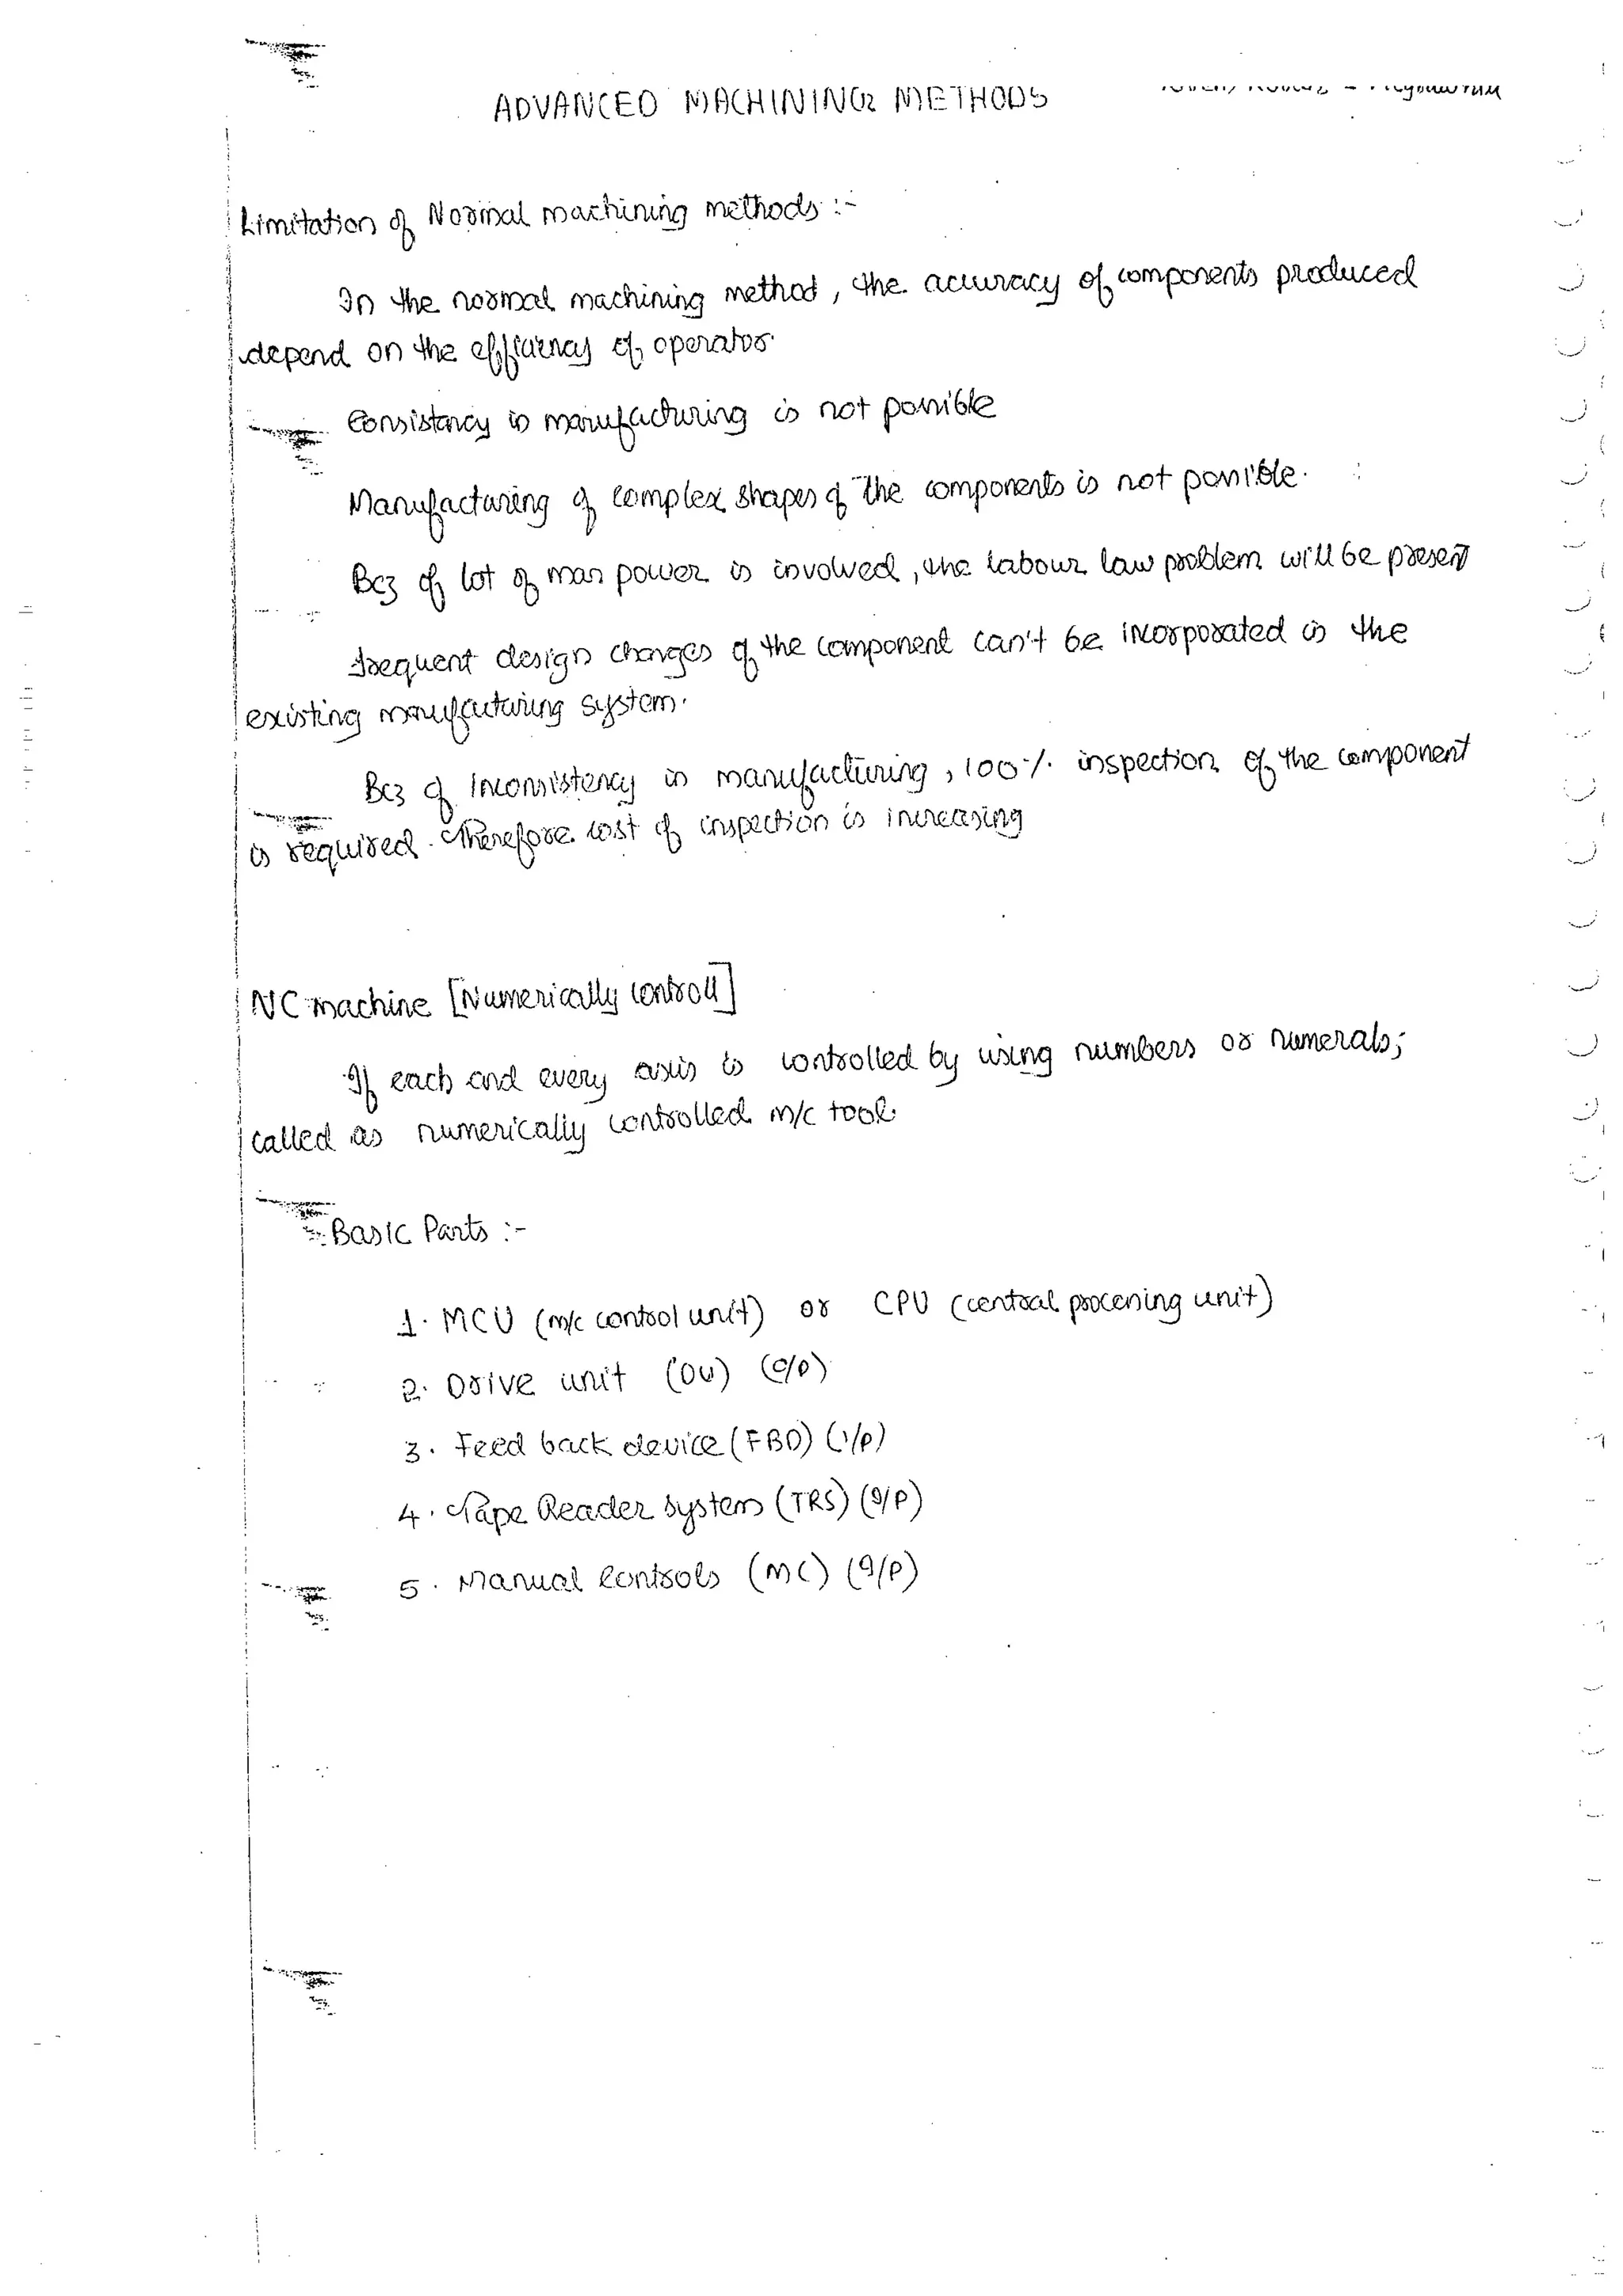 ADVANCED MACHINING METHODS
Limitation of Normal machining methods :-
In the normal machining method, the accuracy of components produced
depend on the efficiency of operator.
Consistency in manufacturing is not possible
Manufacturing of complex shapes of the components is not possible.
Bcz of lot of man power is involved, the labour law problem will be present
frequent design changes of the component can't be incorporated in the
existing manufacturing system.
Bcz of Inconsistency in manufacturing, 100% inspection of the component
is required. Therefore cost of inspection is increasing
NC machine [Numerically controll]
If each and every axis is controlled by using numbers or numerals;
called as numerically controlled m/c tool.
Basic Parts :-
1. MCU (m/c control unit) or CPU (central processing unit)
2. Drive unit (DU) (O/P)
3. Feed back device (FBD) (I/P)
4. Tape Reader system (TRS) (I/P)
5. Manual Controls (MC) (I/P)